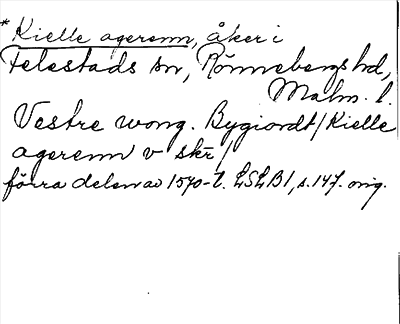 * Kielle agerenn, åker i
Felestads sn, Rönnebergs hd,
Malm. l.
Vestre wong. Bygiordt / Kielle
agerenn v skr /
förra delen av 1570-t. LSLB1, s. 147. orig.